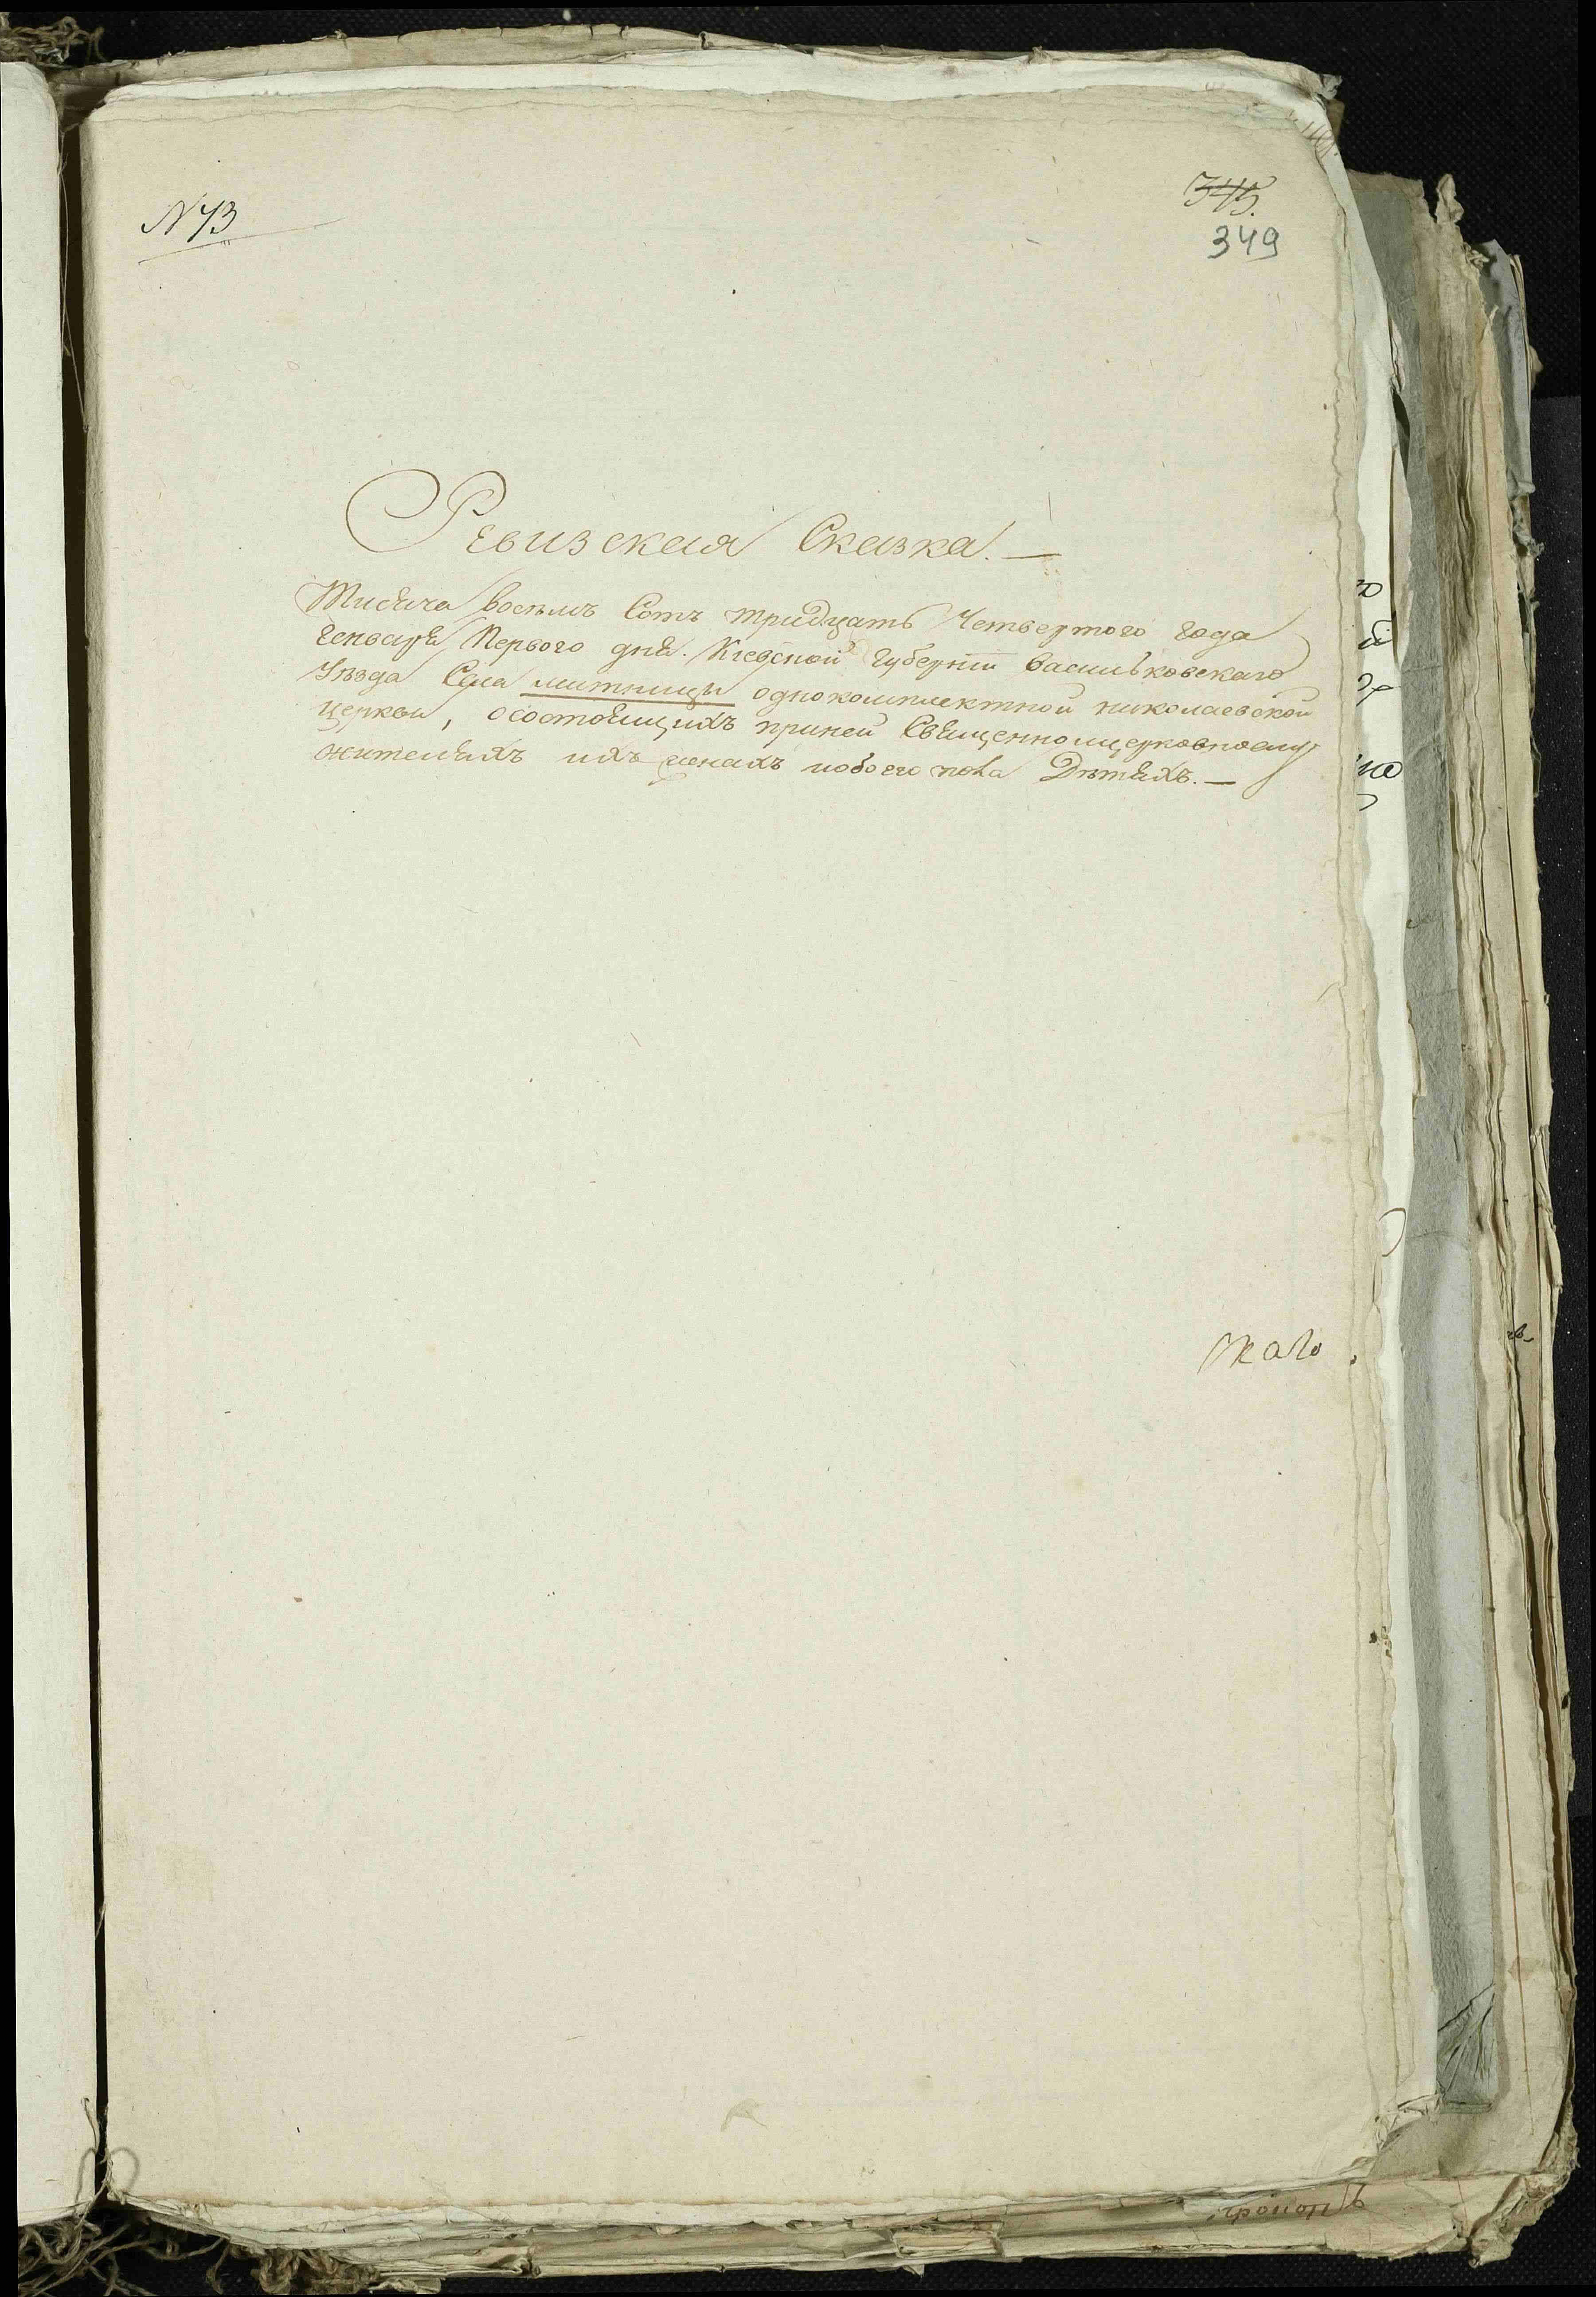 N 73
345.
349
Ревизская Сказка. —
Тисяча восемъ Сотъ тридцать Четвертого года
Генваря Первого дня. Кіевской Губерніи васильковскаго
Уѣзда Села митницы однокомплектной николаевской
церкви, осостоящихъ приней Священноицерковнослу
жителяхъ ихъ женахъ иобоего пола Дѣтяхъ. —